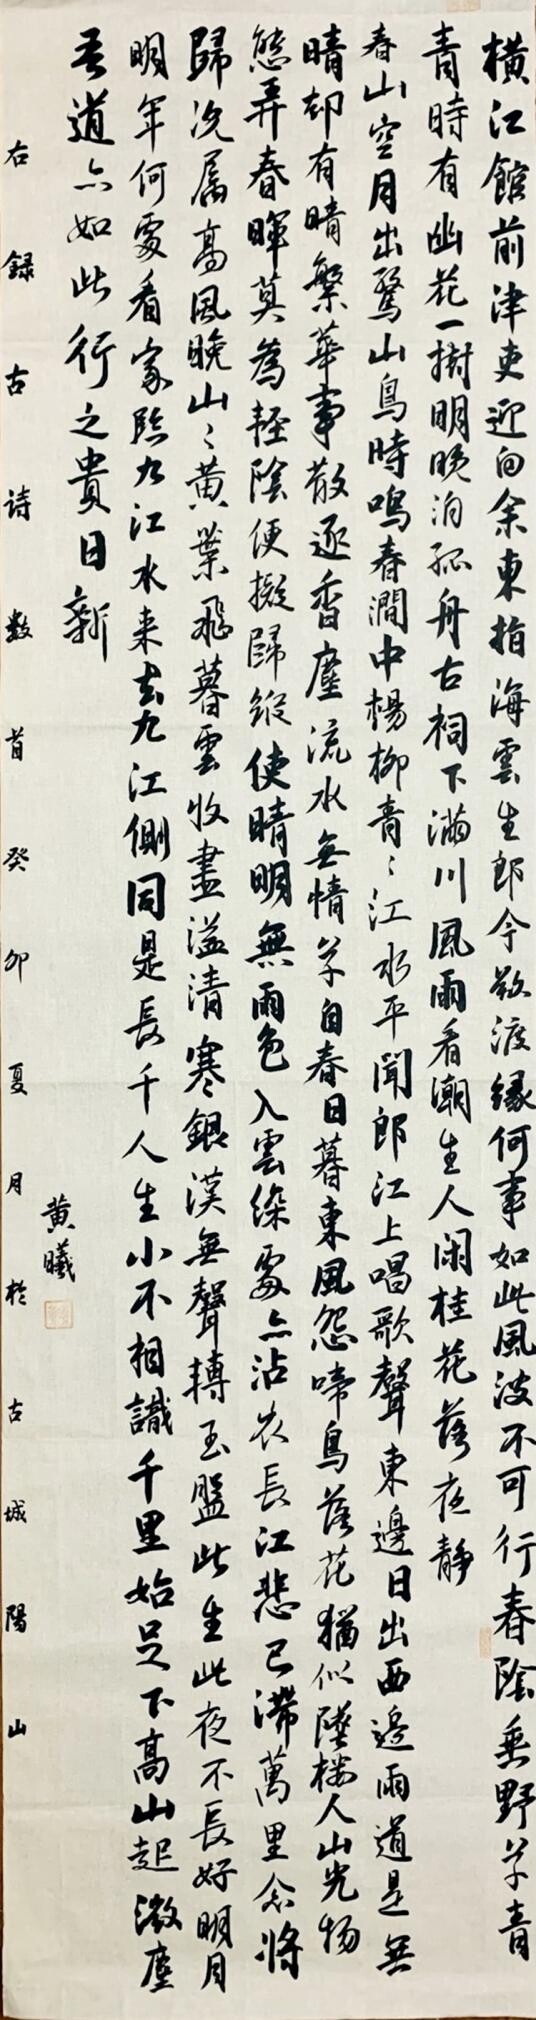 橫江館前津吏迎向余東指海雲生郎今欲渡緣何事如此風波不可行春陰垂野草青
青時有幽花一樹明晚泊孤舟古祠下滿川風雨看潮生人閑桂花落夜靜
春山空月出驚山鳥時鳴春澗中楊柳青〻江水平聞郎江上唱歌聲東邊日出西邊雨道是無
晴却有晴繁華事散逐香塵流水無情草自春日暮東風怨啼鳥落花猶似墜樓人山光物
態弄春暉莫為輕陰便擬歸縱使晴明無雨色入雲深處亦沾衣長江悲已滯萬里念將
歸況属高風晚山〻黃葉飛暮雲收盡溢清寒銀漢無聲轉玉盤此生此夜不長好明月
明年何處看家臨九江水來去九江側同是長干人生小不相識千里始足下高山起微塵
吾道亦如此行之貴日新
右錄古詩數首癸卯夏月於古城陽山
黃曦